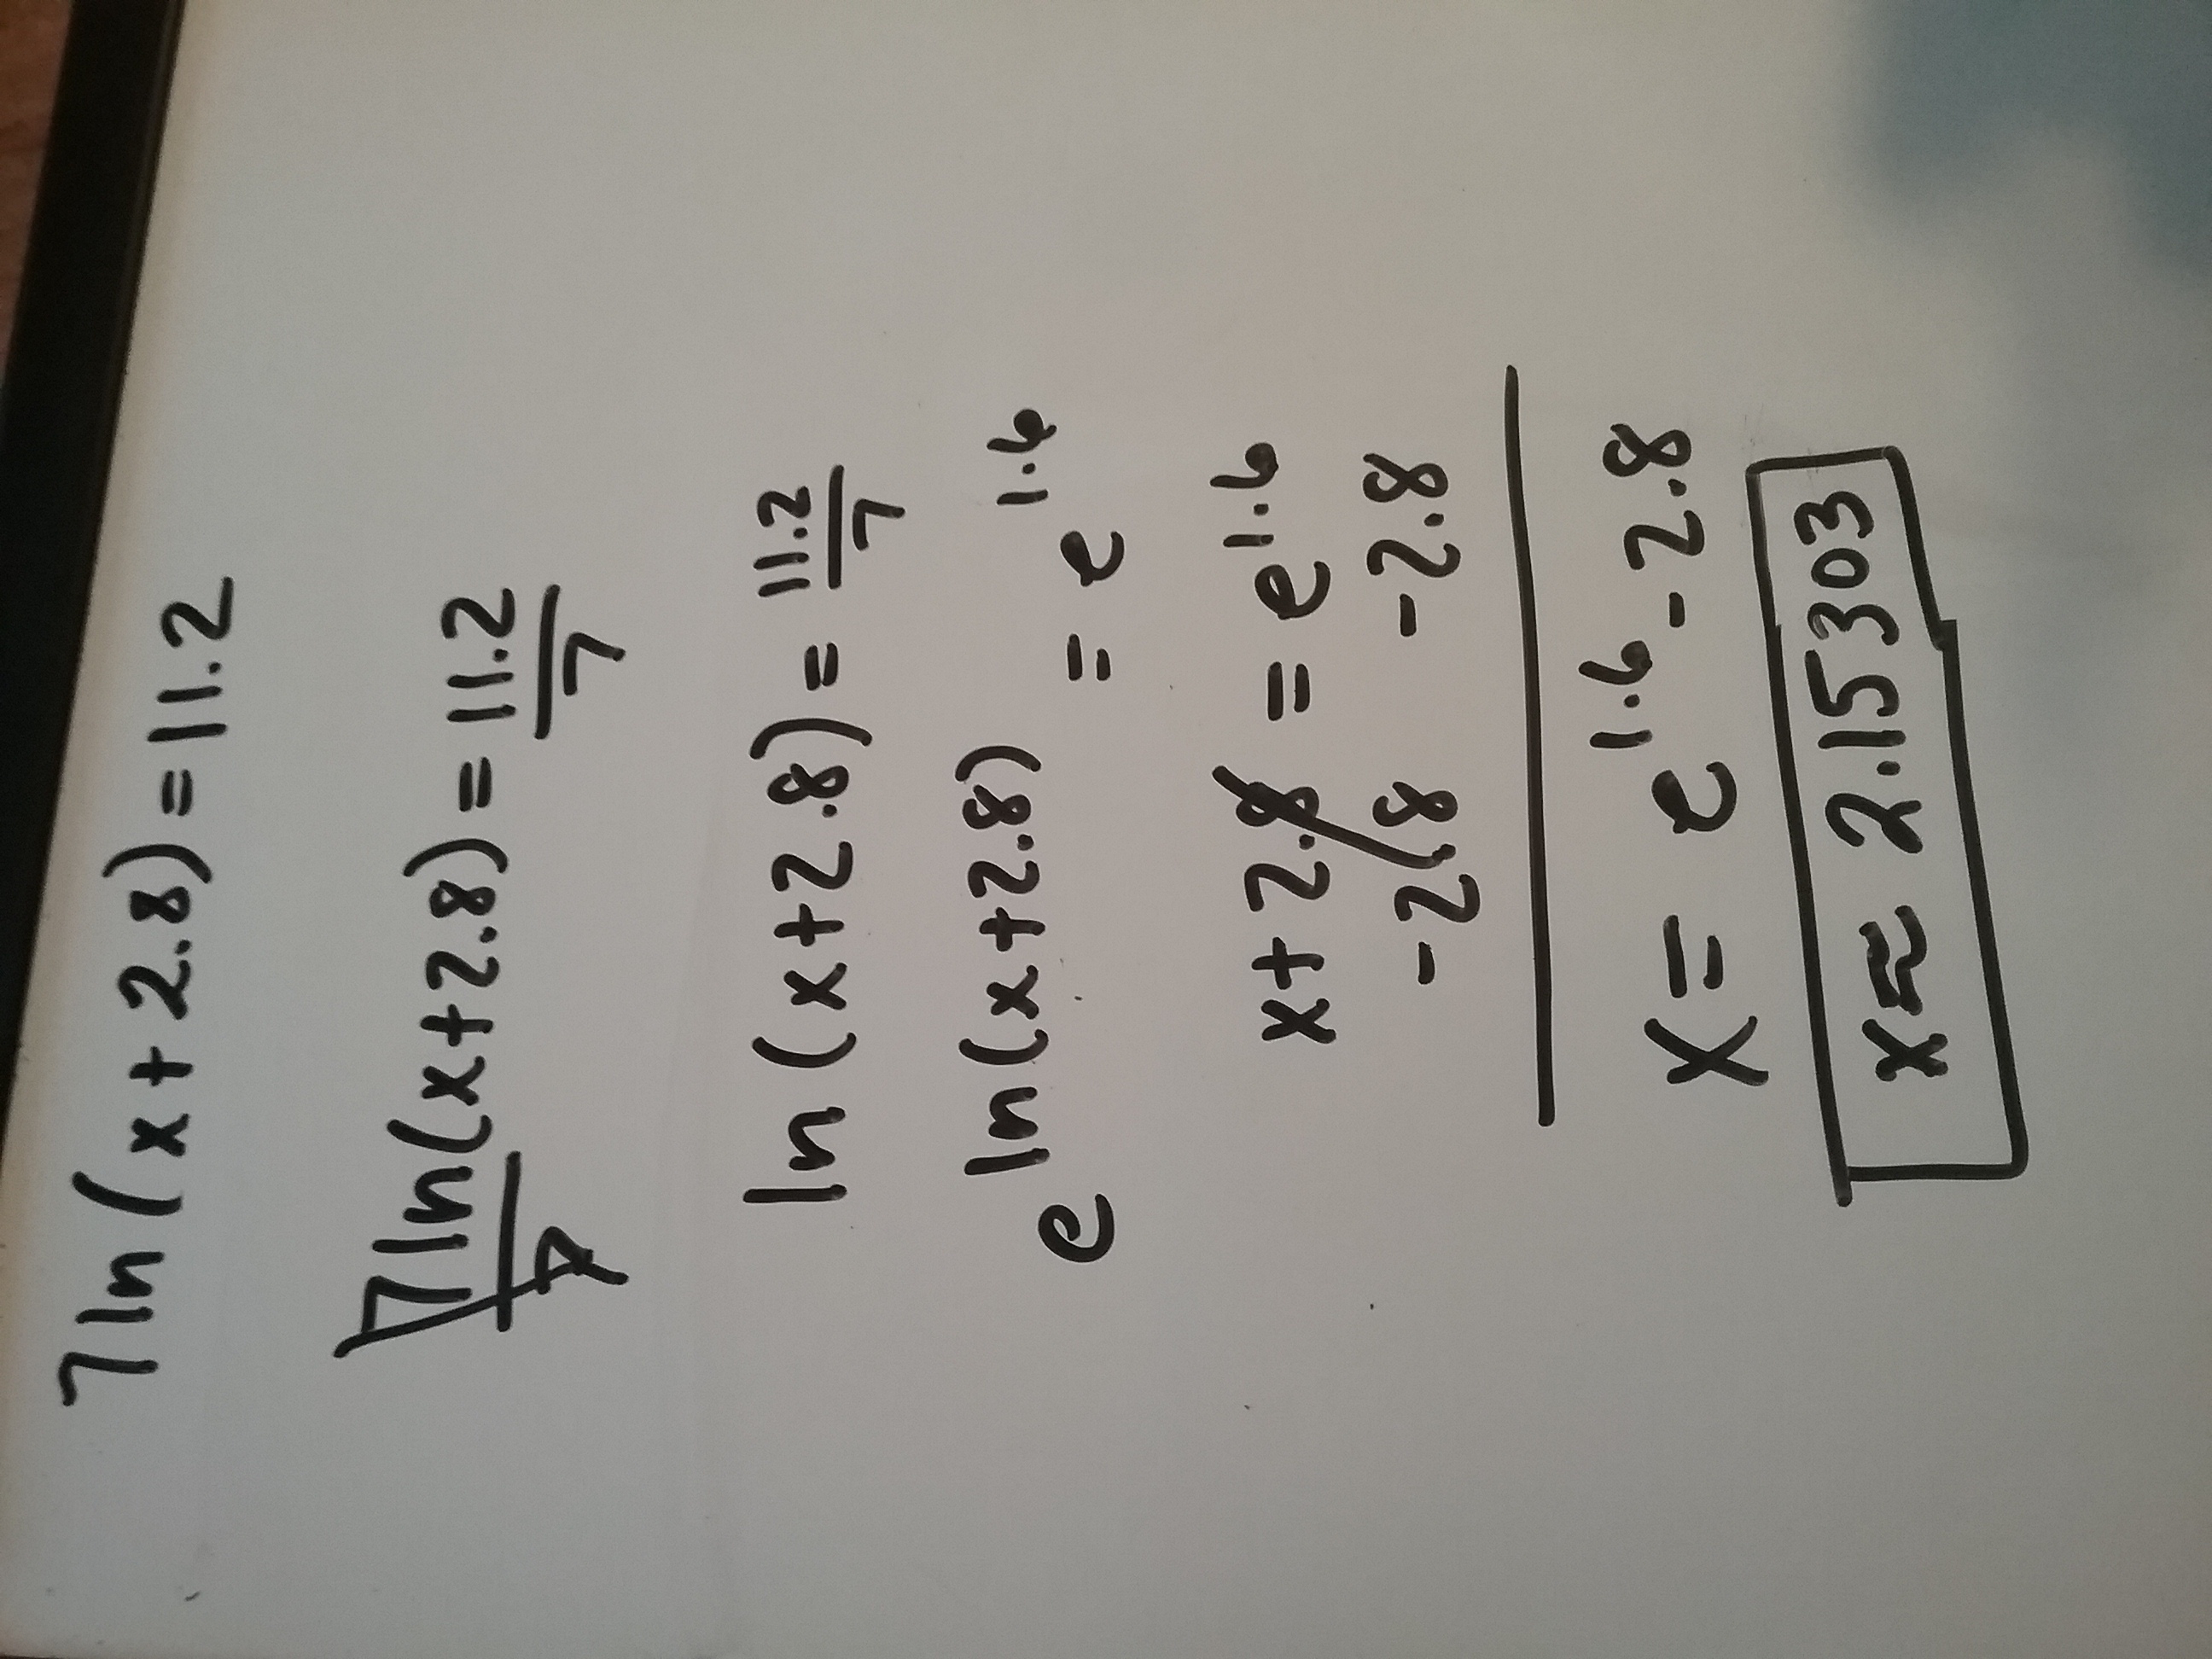 7 ln (x + 2.8) = 11.2
7 ln(x+2.8) = 11.2
7 7
ln (x+2.8) = 11.2/7
e^ln(x+2.8) = e^1.6
x+2.8 = e^1.6
-2.8 -2.8
x = e^1.6 - 2.8
x ≈ 2.15303